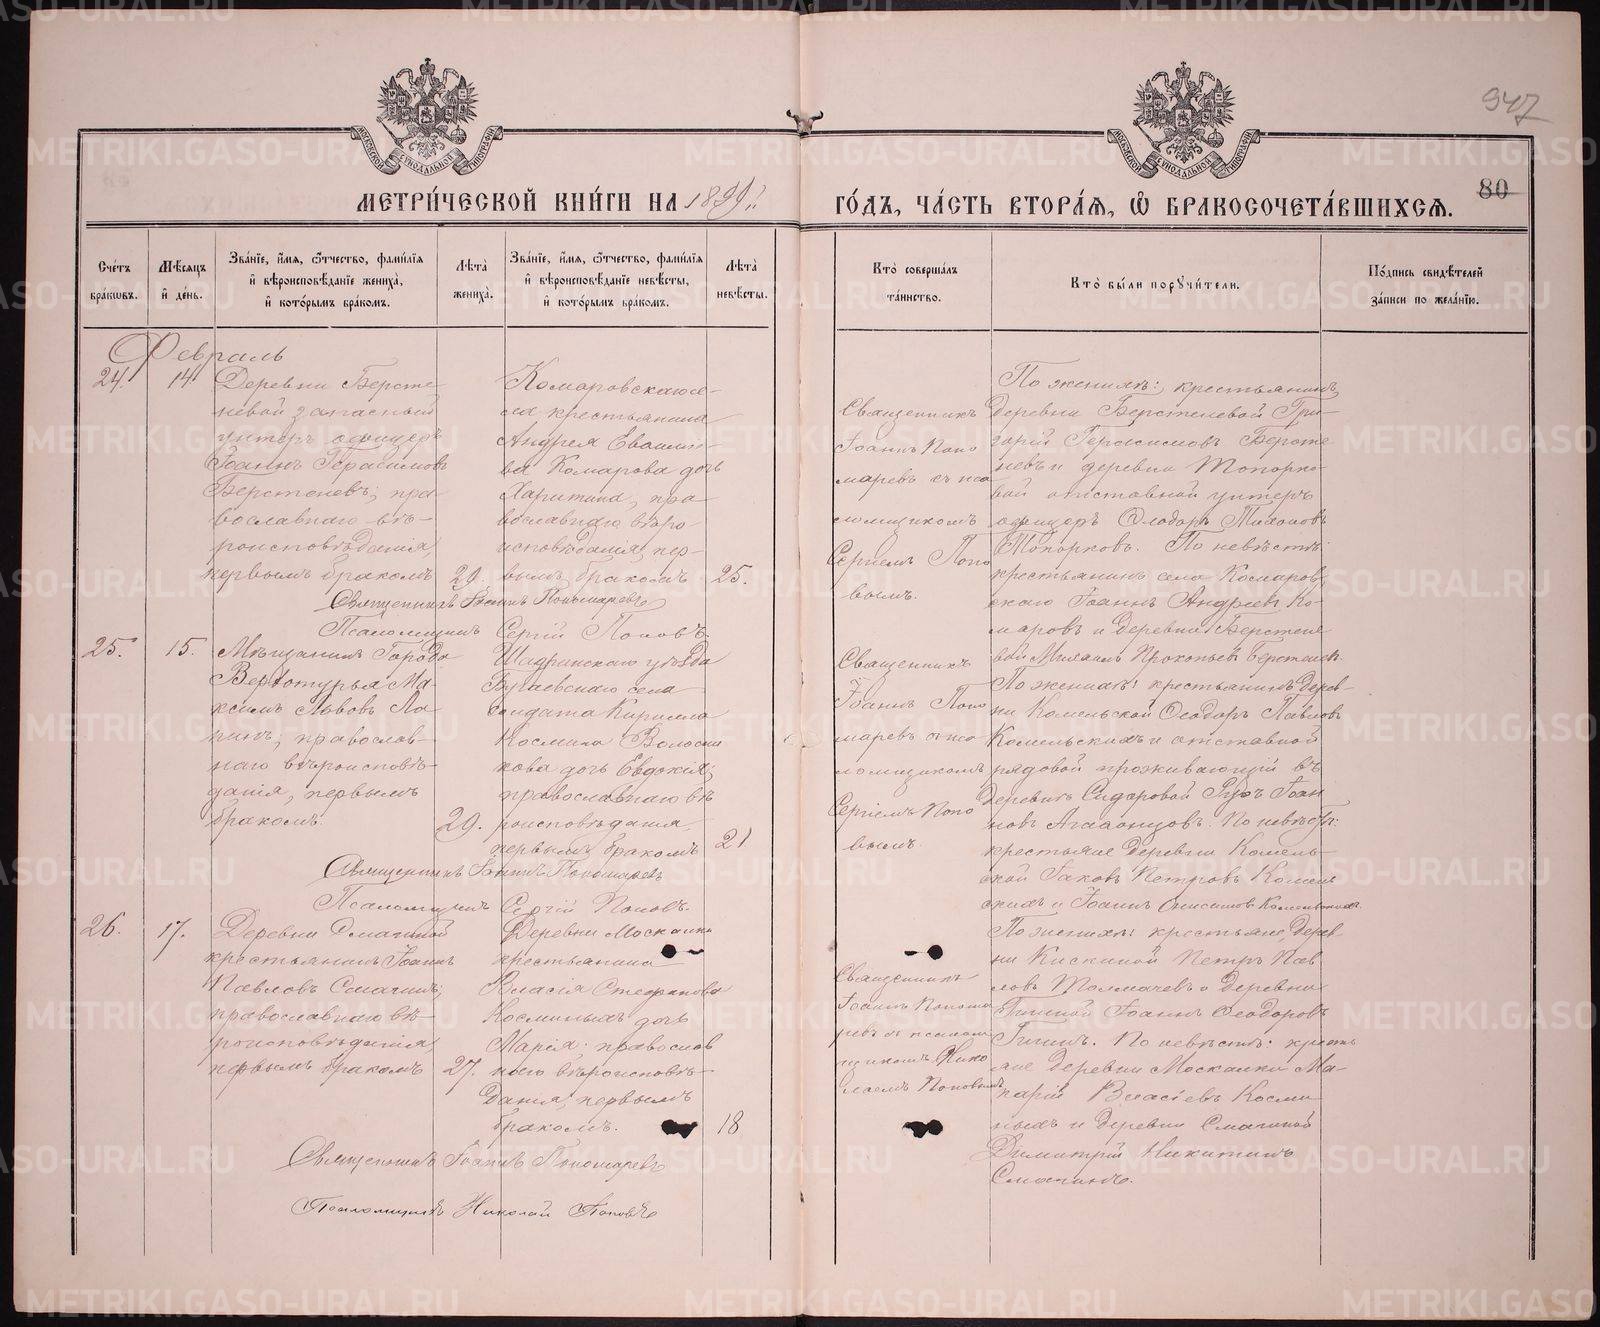 947
80
МЕТРИ́ЧЕСКОЙ КНИ́ГИ НА 1899
ГО́ДЪ, ЧА́СТЬ ВТОРА́Я, Ѡ БРАКОСОЧЕТА́ВШИХСЯ.
Сче́тъ бра́ковъ.
Мѣ́сяцъ и҆ де́нь.
Зва́нїе, и҆́мя, ѻ҆́тчество, фами́лїя и҆ вѣроисповѣ́данїе жениха̀, и҆ кото́рымъ бра́комъ.
Лѣ́та жениха.
Зва́нїе, и҆́мя, ѻ҆́тчество, фами́лїя и҆ вѣроисповѣ́данїе невѣ́сты, и҆ кото́рымъ бра́комъ.
Лѣ́та невѣ́сты.
Кто̀ соверша́лъ та́инство.
Кто̀ бы́ли порꙋчи́тели.
По́дпись свидѣ́телей за́писи по жела́нїю.
Февраль
24.
14
Деревни Берсте
невой запасный
унтеръ офицеръ
Іоаннъ Герасимовъ
Берстеневъ; пра
вославнаго вѣ-
роисповѣданія,
первымъ бракомъ
29.
Комаровскаго се-
ла крестьянина
Андрея
ва Комарова дочь
Харитина, пра
вославнаго вѣро
исповѣданія, пер-
вымъ бракомъ
25.
Священникъ
Іоаннъ Поно
маревъ съ пса
ломщикомъ
Сергіемъ Попо
вымъ.
По женихѣ: крестьянинъ
деревни Берстеневой Гри-
горій Герасимовъ Берсте
невъ и деревни Топорко-
вой отставной унтеръ
офицеръ Ѳеодоръ Тихоновъ
Топорковъ. По невѣстѣ:
крестьянинъ села Комаров-
скаго Іоаннъ Андреевъ Ко-
маровъ и деревни Берстене
вой Михаилъ Прокопьевъ Берстенев.
Священникъ Іоаннъ Пономаревъ
Псаломщикъ Сергій Поповъ.
25.
15.
Мѣщанинъ Города
Верхотурья Ма-
ксимъ Львовъ Ла-
пинъ; православ-
наго вѣроисповѣ-
данія, первымъ
бракомъ.
29.
Шадринскаго уѣзда
села
солдата Кирилла
Космина
кова дочь Евдокія;
православнаго вѣ
роисповѣданія,
первымъ бракомъ
21
Священникъ
Іоаннъ Поно
маревъ съ пса
ломщикомъ
Сергіемъ Попо
вымъ
По женихѣ: крестьянинъ дерев-
ни Комельской Ѳеодоръ Павловъ
Комельскихъ и отставной
рядовой проживающій въ
деревнѣ Сидоровой Іоан
новъ По невѣстѣ:
крестьяне деревни Комель-
ской Іаковъ Петровъ Комель
скихъ и Іоаннъ Онисимовъ Комельскихъ.
Священникъ Іоаннъ Пономаревъ
Псаломщикъ Сергій Поповъ.
26.
17.
Деревни Смагиной
крестьянинъ Іоаннъ
Павловъ Смагинъ;
православнаго вѣ-
роисповѣданія,
первымъ бракомъ
27.
Деревни Москалки
крестьянина
Власія Стефанова
Косминыхъ дочь
Марія; православ
наго вѣроисповѣ-
данія, первымъ
бракомъ.
18
Священникъ
Іоаннъ Понома
ревъ съ псалом
щикомъ Нико
лаемъ Поповымъ
По женихѣ: крестьяне, дерев
ни Кискиной Петръ Пав
ловъ Толмачевъ и деревни
Гилиной Іоаннъ Ѳеодоровъ
Гилинъ. По невѣстѣ: кресть
яне деревни Москалки Ма-
карій Власіевъ Косми
ныхъ и деревни Смагиной
Димитрій Никитинъ
Смагинъ.
Священникъ Іоаннъ Пономаревъ
Псаломщикъ Николай Поповъ
METRIKI.GASO-URAL.RU